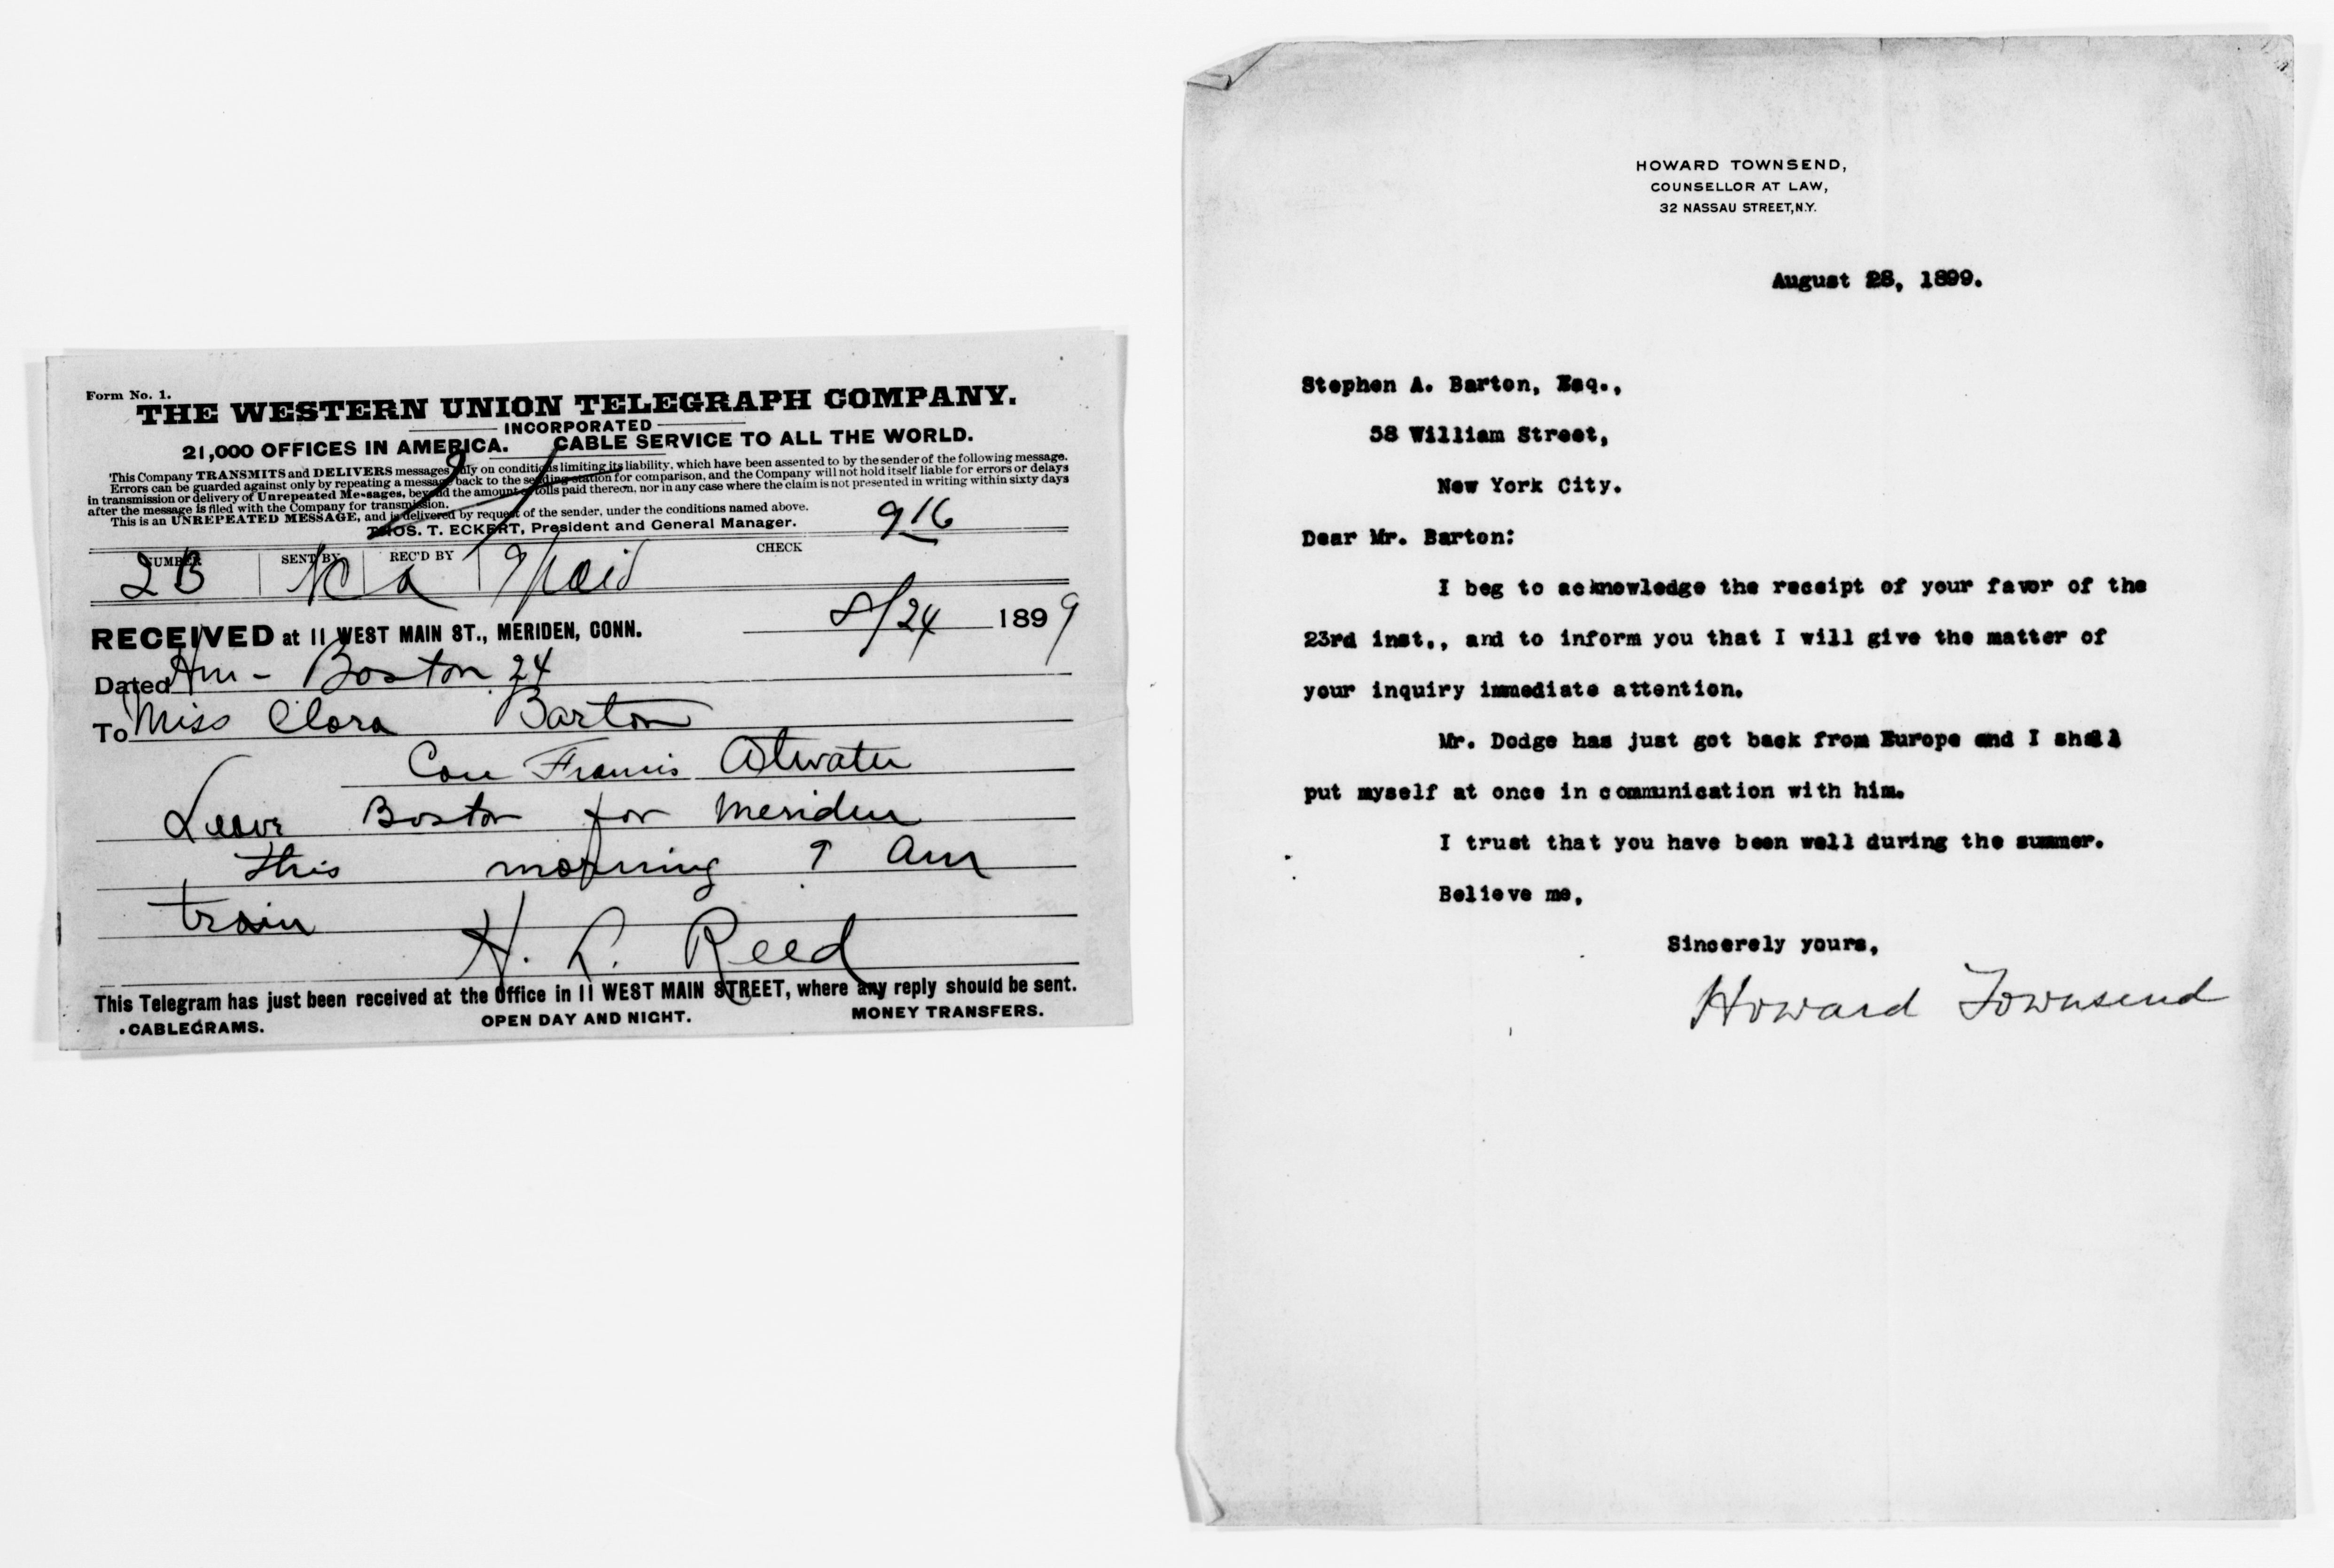 Form No. 1.
THE WESTERN UNION TELEGRAPH COMPANY.
INCORPORATED
21,000 OFFICES IN AMERICA. CABLE SERVICE TO ALL THE WORLD.
This Company TRANSMITS and DELIVERS messages only on conditions limiting its liability, which have been assented to by the sender of the following message.
Errors can be guarded against only by repeating a message back to the sending station for comparison, and the Company will not hold itself liable for errors or delays
in transmission or delivery of Unrepeated Messages, beyond the amount of tolls paid thereon, nor in any case where the claim is not presented in writing within sixty days
after the message is filed with the Company for transmission.
This is an UNREPEATED MESSAGE, and is delivered by request of the sender, under the conditions named above.
THOS. T. ECKERT, President and General Manager.
916
NUMBER SENT BY REC'D BY CHECK
2B a 9 Paid
RECEIVED at 11 WEST MAIN ST., MERIDEN, CONN. 8/24 1899
Dated Am - Boston 24
To Miss Clara Barton
Care Francis Atwater
Leave Boston for Meriden
this morning 9 Am
train
H. L. Reed
This Telegram has just been received at the Office in 11 WEST MAIN STREET, where any reply should be sent.
CABLEGRAMS. OPEN DAY AND NIGHT. MONEY TRANSFERS.
HOWARD TOWNSEND,
COUNSELLOR AT LAW,
32 NASSAU STREET, N.Y.
August 28, 1899.
Stephen A. Barton, Esq.,
58 William Street,
New York City.
Dear Mr. Barton:
I beg to acknowledge the receipt of your favor of the
23rd inst., and to inform you that I will give the matter of
your inquiry immediate attention.
Mr. Dodge has just got back from Europe and I shall
put myself at once in communication with him.
I trust that you have been well during the summer.
Believe me,
Sincerely yours,
Howard Townsend